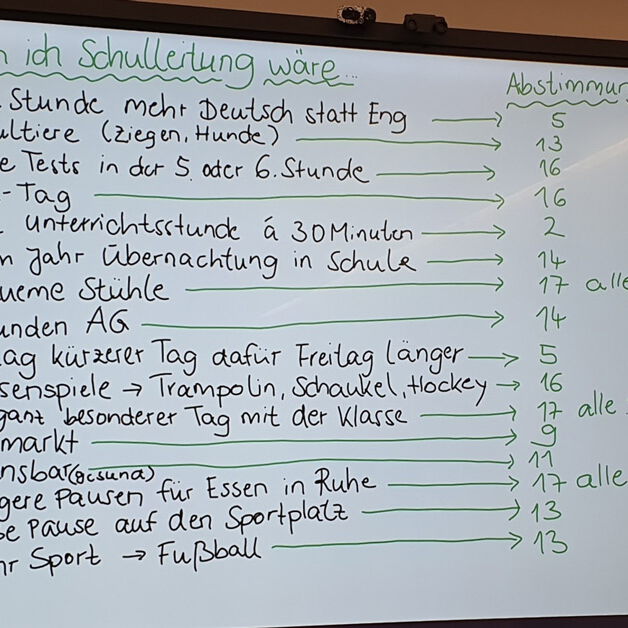 ich Schulleitung wäre...
Abstimmun
Stunde mehr Deutsch statt Eng → 5
ultiere (Ziegen, Hunde) → 13
e Tests in der 5. oder 6. Stunde → 16
-Tag → 16
Unterrichtsstunde á 30 Minuten → 2
n Jahr Übernachtung in Schule → 14
ueme Stühle → 17 alle
unden AG → 14
ag kürzerer Tag dafür Freitag länger → 5
senspiele → Trampolin, Schaukel, Hockey → 16
ganz besonderer Tag mit der Klasse → 17 alle
markt → 9
nsbar (gesund) → 11
gere Pausen für Essen in Ruhe → 17 alle
se Pause auf den Sportplatz → 13
hr Sport → Fußball → 13